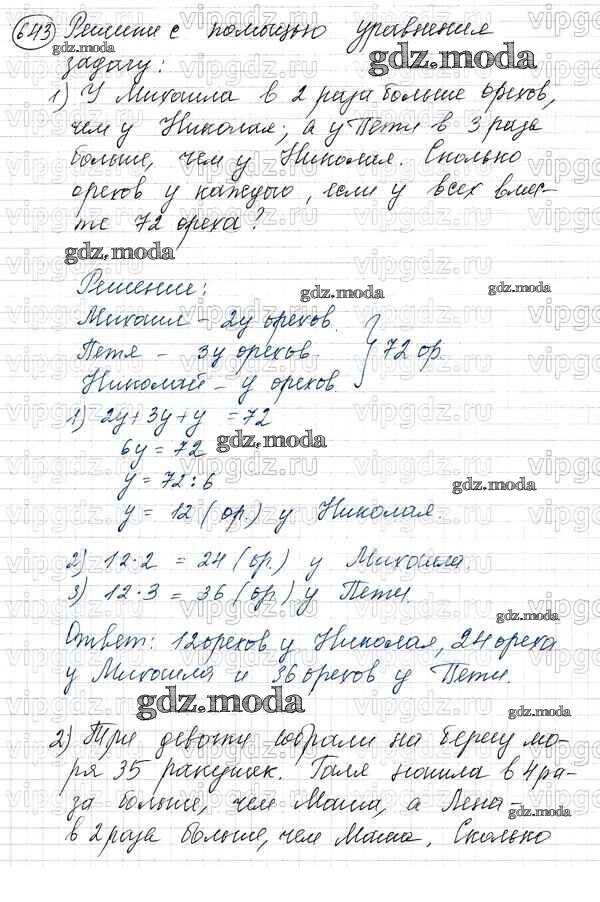 643 Решите с помощью уравнения
gdz.moda
задачу:
1) У Михаила в 2 раза больше орехов,
чем у Николая, а у Пети в 3 раза
больше, чем у Николая. Сколько
орехов у каждого, если у всех вмес-
те 72 ореха?
gdz.moda
Решение:
gdz.moda
gdz.moda
Михаил – 2y орехов.
Петя – 3y орехов. } 72 ор.
Николай – y орехов.
1) 2y+3y+y = 72
6y = 72
gdz.moda
y = 72:6
gdz.moda
y = 12 (ор.) у Николая.
2) 12·2 = 24 (ор.) у Михаила.
3) 12·3 = 36 (ор.) у Пети.
gdz.moda
Ответ: 12 орехов у Николая, 24 ореха
у Михаила и 36 орехов у Пети.
gdz.moda
gdz.moda
2) Три девочки собрали на берегу мо-
ря 35 ракушек. Галя нашла в 4 ра-
за больше, чем Маша, а Лена –
gdz.moda
в 2 раза больше, чем Маша. Сколько